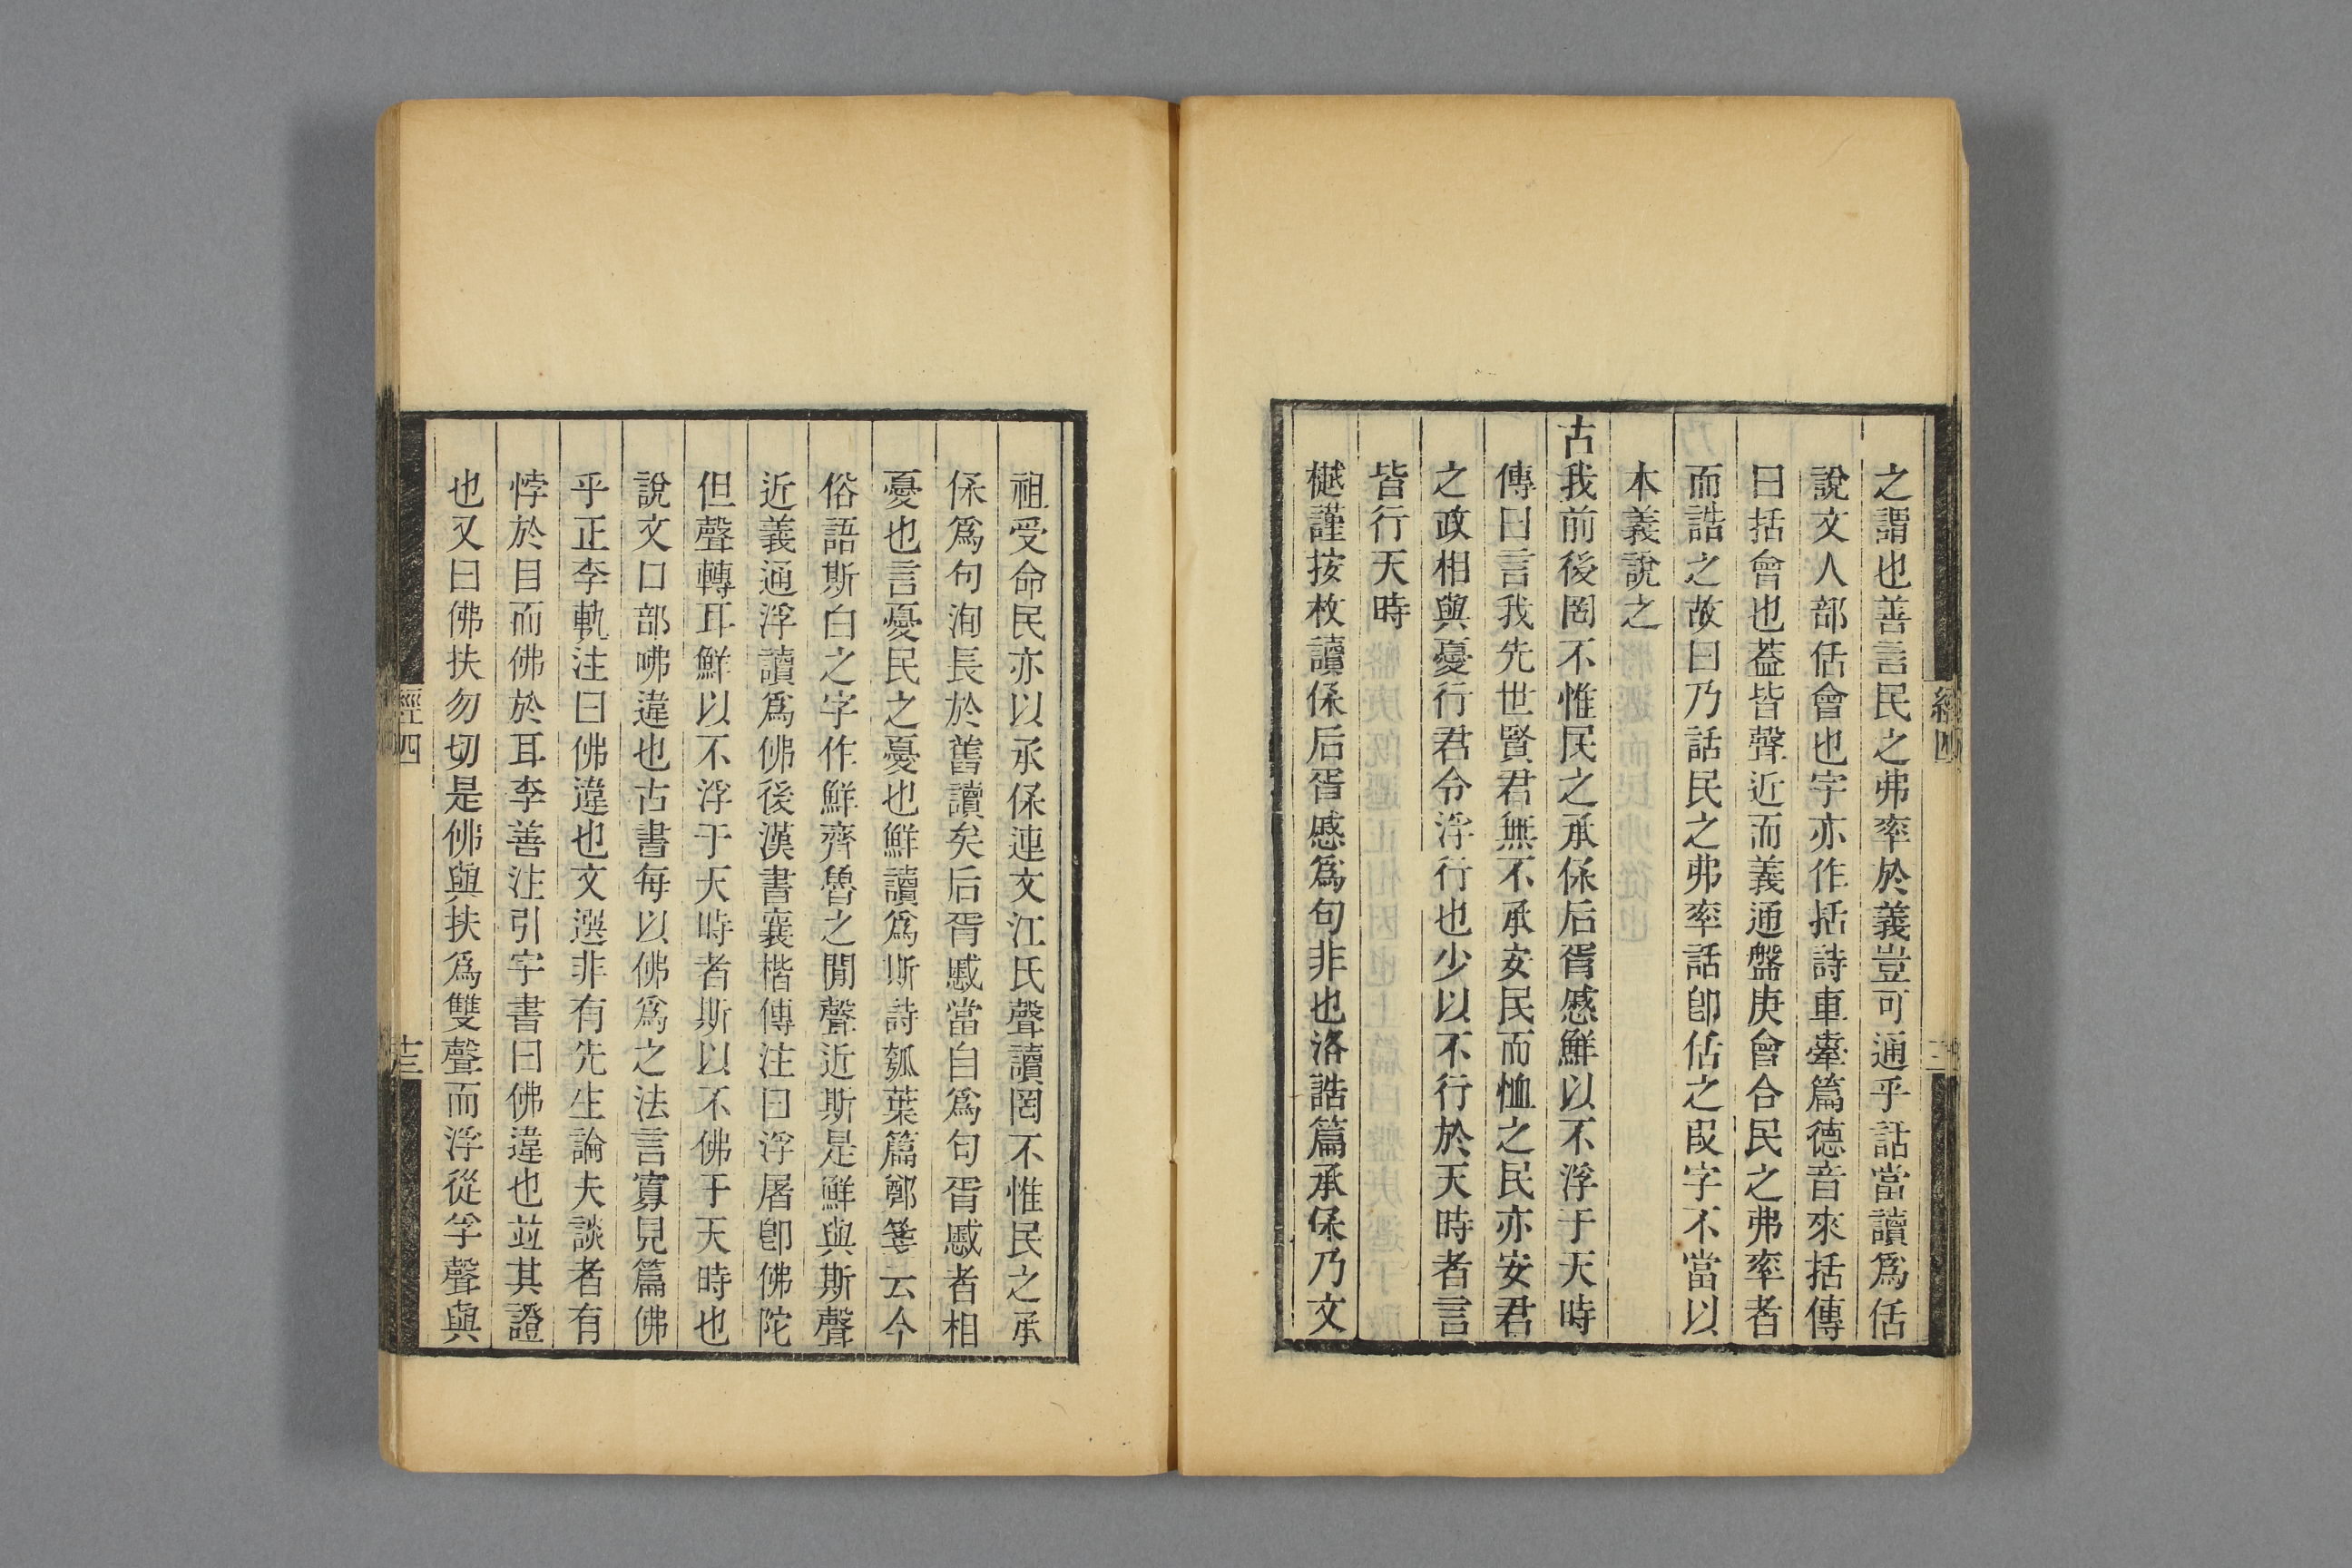 之謂也善言民之弗率於義豈可通乎話當讀爲佸
說文人部佸會也字亦作括詩車舝篇德音來括傳
曰括會也葢皆聲近而義通盤庚會合民之弗率者
而誥之故曰乃話民之弗率話卽佸之叚字不當以
本義說之
古我前後罔不惟民之承保后胥慼鮮以不浮于天時
傳曰言我先世賢君無不承安民而恤之民亦安君
之政相與憂行君令浮行也少以不行於天時者言
皆行天時
樾謹按枚讀保后胥慼爲句非也洛誥篇承保乃文
祖受命民亦以承保連文江氏聲讀罔不惟民之承
保爲句洵長於舊讀矣后胥慼當自爲句胥慼者相
憂也言憂民之憂也鮮讀爲斯詩瓠葉篇鄭箋云今
俗語斯白之字作鮮齊魯之閒聲近斯是鮮與斯聲
近義通浮讀爲佛後漢書襄楷傳注曰浮屠卽佛陀
但聲轉耳鮮以不浮于天時者斯以不佛于天時也
說文口部咈違也古書每以佛爲之法言寡見篇佛
乎正李軌注曰佛違也文選非有先生論夫談者有
悖於目而佛於耳李善注引字書曰佛違也竝其證
也又曰佛扶勿切是佛與扶爲雙聲而浮從孚聲與
經四
十三